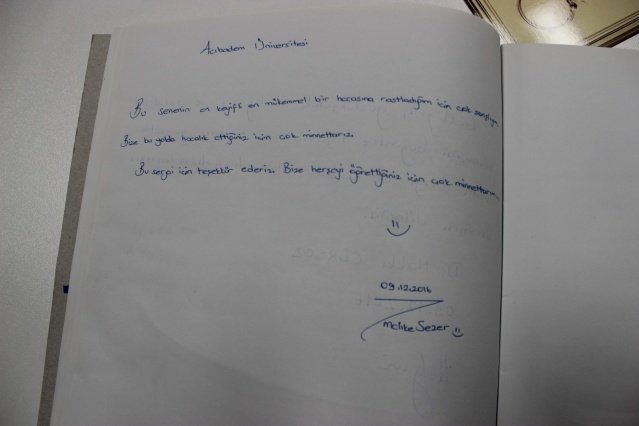 Acıbadem Üniversitesi
Bu senenin en keyifli en mükemmel bir hocasına rastladığım için çok şanslıyım
Bize bu yolda hocalık ettiğiniz için çok minnettarız.
Bu sergi için teşekkür ederiz. Bize herşeyi öğrettiğiniz için çok minnettarız.
09.12.2016
Melike Sezer